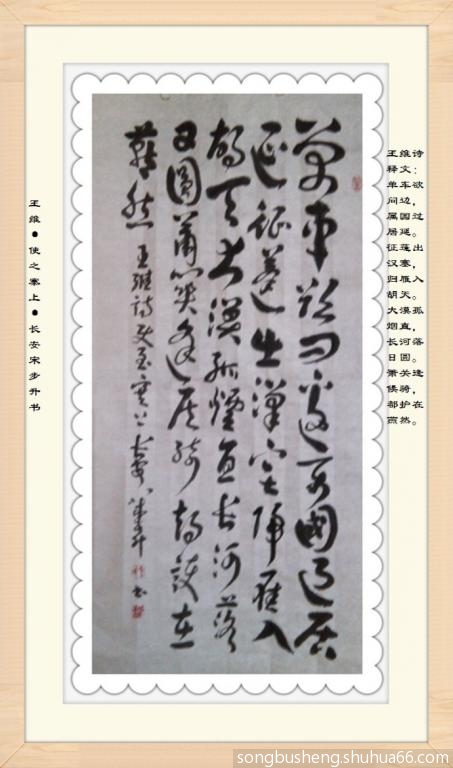 王维诗
释文：
单车欲
问边，
属国过
居延。
征莲出
汉塞，
归雁入
胡天。
大漠孤
烟直，
长河落
日圆。
萧关逢
候骑，
都护在
燕然。
單車欲问邊属國過居
延征蓬出漢塞歸雁入
胡天大漠孤煙直长河落
日圓蕭關逢候骑都護在
燕然 王維詩使至塞上 长安宋步升书
王维●使之塞上●长安宋步升书
songbusheng.shuhua66.com